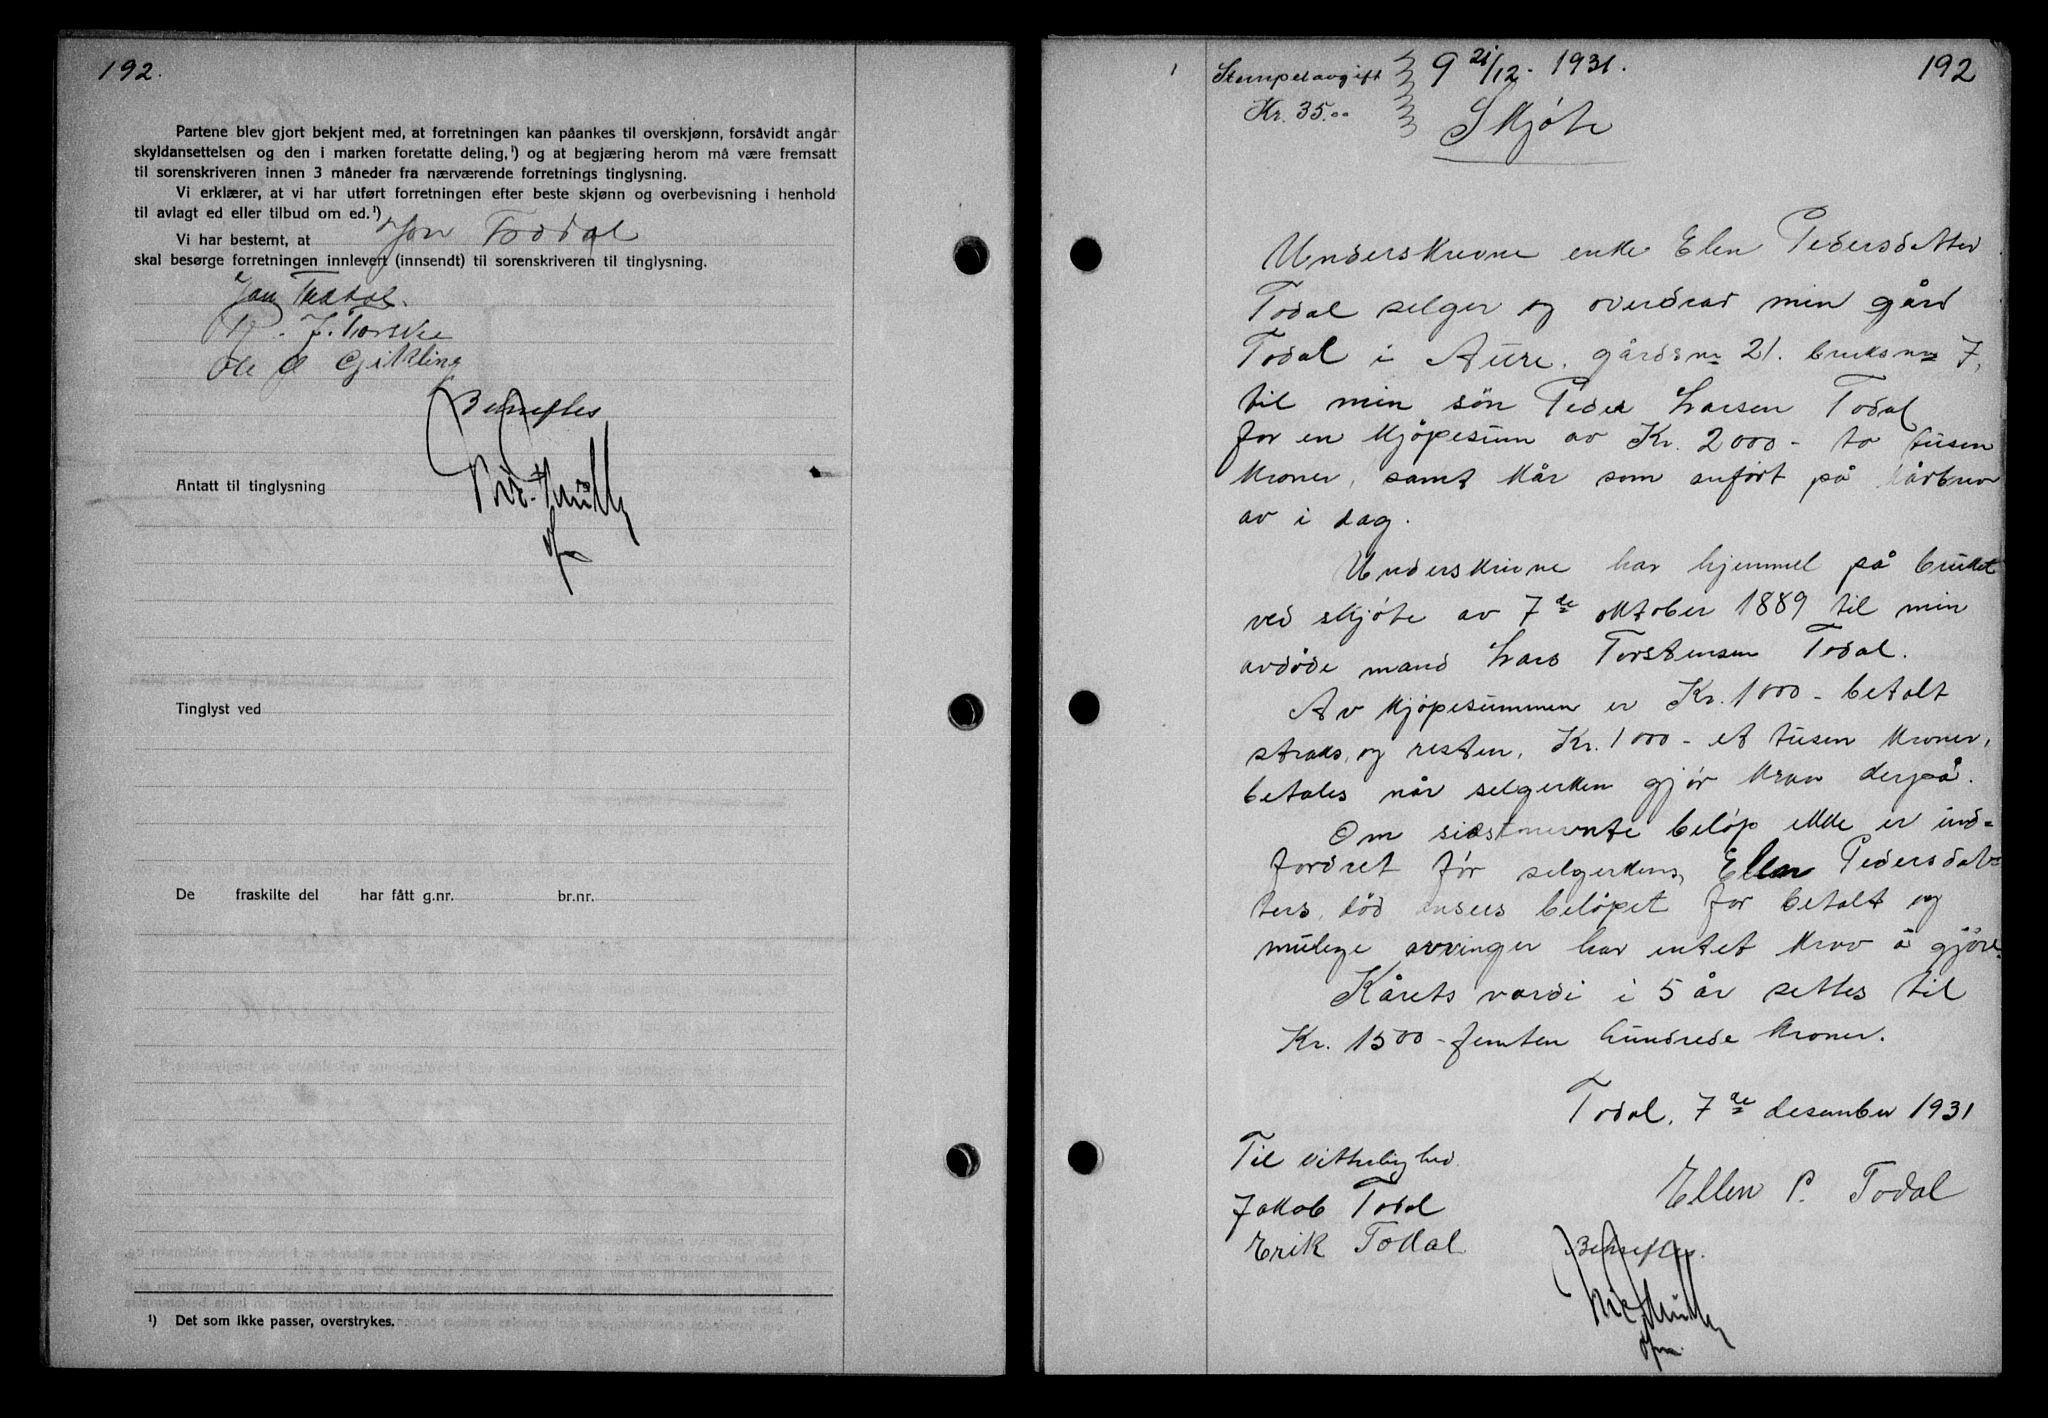 192.
Partene blev gjort bekjent med, at forretningen kan påankes til overskjønn, forsåvidt angår
skyldansettelsen og den i marken foretatte deling,¹) og at begjæring herom må være fremsatt
til sorenskriveren innen 3 måneder fra nærværende forretnings tinglysning.
Vi erklærer, at vi har utført forretningen efter beste skjønn og overbevisning i henhold
til avlagt ed eller tilbud om ed.¹)
Vi har bestemt, at Jon Todal
skal besørge forretningen innlevert (innsendt) til sorenskriveren til tinglysning.
Jon Todal.
J. Torske
Ole O Gjikling
Bekreftes
Antatt til tinglysning
Tinglyst ved
De fraskilte del har fått g.nr. br.nr.
¹) Det som ikke passer, overstrykes.
Stempelavgift 9 21/12. 1931. 192
Kr. 35.00
Skjøte
Underskrevne enke Elen Pedersdatter
Todal selger og overdrar min gård
Todal i Aure, gårdsnr 21. bruksnr 7,
til min søn Peder Larsen Todal
for en kjøpesum av Kr. 2000 - to tusen
kroner, samt kår som anført på kårbrev
av i dag.
Underskrivne har hjemmel på bruket
ved skjøte av 7de oktober 1889 til min
avdøde mand Lars Torstensen Todal.
Av kjøpesummen er Kr. 1000 - betalt
straks, og resten, Kr. 1000 - et tusen kroner,
betales når selgerken gjør krav derpå.
Om sidstnevnte beløp ikke er ind-
fordret før selgerkens, Ellen Pedersdat-
ters, død anses beløpet for betalt og
mulige arvinger har intet krav å gjøre.
Kårets værdi i 5 år settes til
Kr. 1500 - femten hundrede kroner.
Todal, 7de desember 1931
Til vitterlighed.
Ellen P. Todal
Jakob Todal
Erik Todal
Bekreftes.